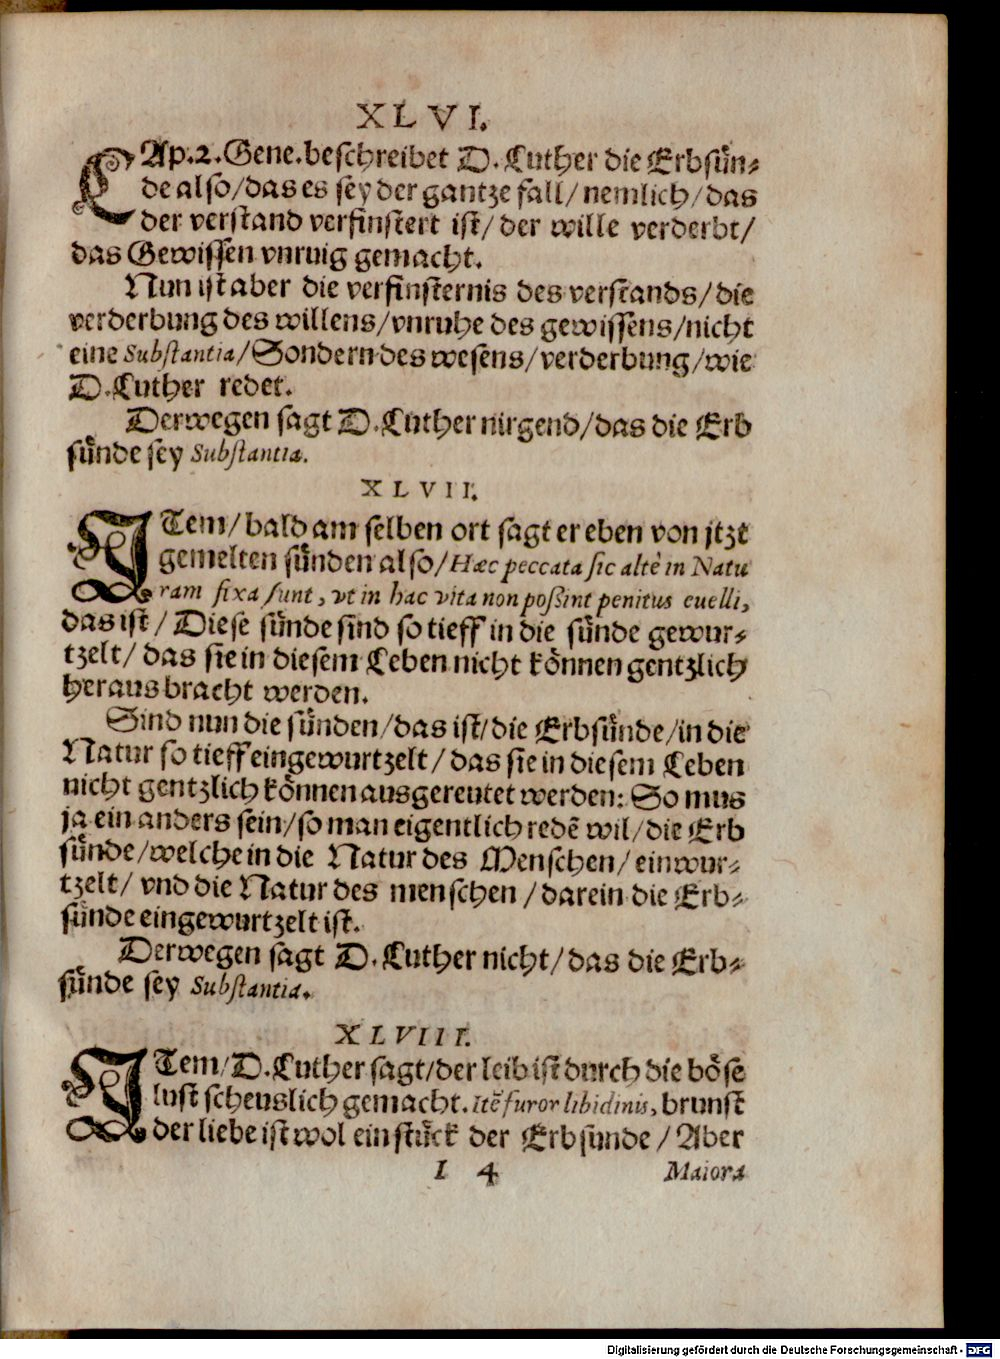 XLVI.
CAp.2.Gene.beschreibet D.Luther die Erbsün-
de also/das es sey der gantze fall/nemlich/das
der verstand verfinstert ist/der wille verderbt/
das Gewissen vnruig gemacht.
Nun ist aber die verfinsternis des verstands/die
verderbung des willens/vnruhe des gewissens/nicht
eine Substantia/Sondern des wesens/verderbung/wie
D.Luther redet.
Derwegen sagt D.Luther nirgend/das die Erb
sünde sey Substantia.
XLVII.
ITem/bald am selben ort sagt er eben von jtzt
gemelten sünden also/Hæc peccata sic altè in Natu
ram fixa sunt, vt in hac vita non poßint penitus euelli,
das ist/Diese sünde sind so tieff in die sünde gewur-
tzelt/das sie in diesem Leben nicht können gentzlich
heraus bracht werden.
Sind nun die sünden/das ist/die Erbsünde/in die
Natur so tieff eingewurtzelt/das sie in diesem Leben
nicht gentzlich können ausgereutet werden: So mus
ja ein anders sein/so man eigentlich redē wil/die Erb
sünde/welche in die Natur des Menschen/einwur-
tzelt/vnd die Natur des menschen/darein die Erb-
sünde eingewurtzelt ist.
Derwegen sagt D.Luther nicht/das die Erb-
sünde sey Substantia.
XLVIII.
ITem/D.Luther sagt/der leib ist durch die böse
lust scheuslich gemacht. Itē furor libidinis, brunst
der liebe ist wol ein stück der Erbsunde/Aber
I 4 Maiora
Digitalisierung gefördert durch die Deutsche Forschungsgemeinschaft - DFG